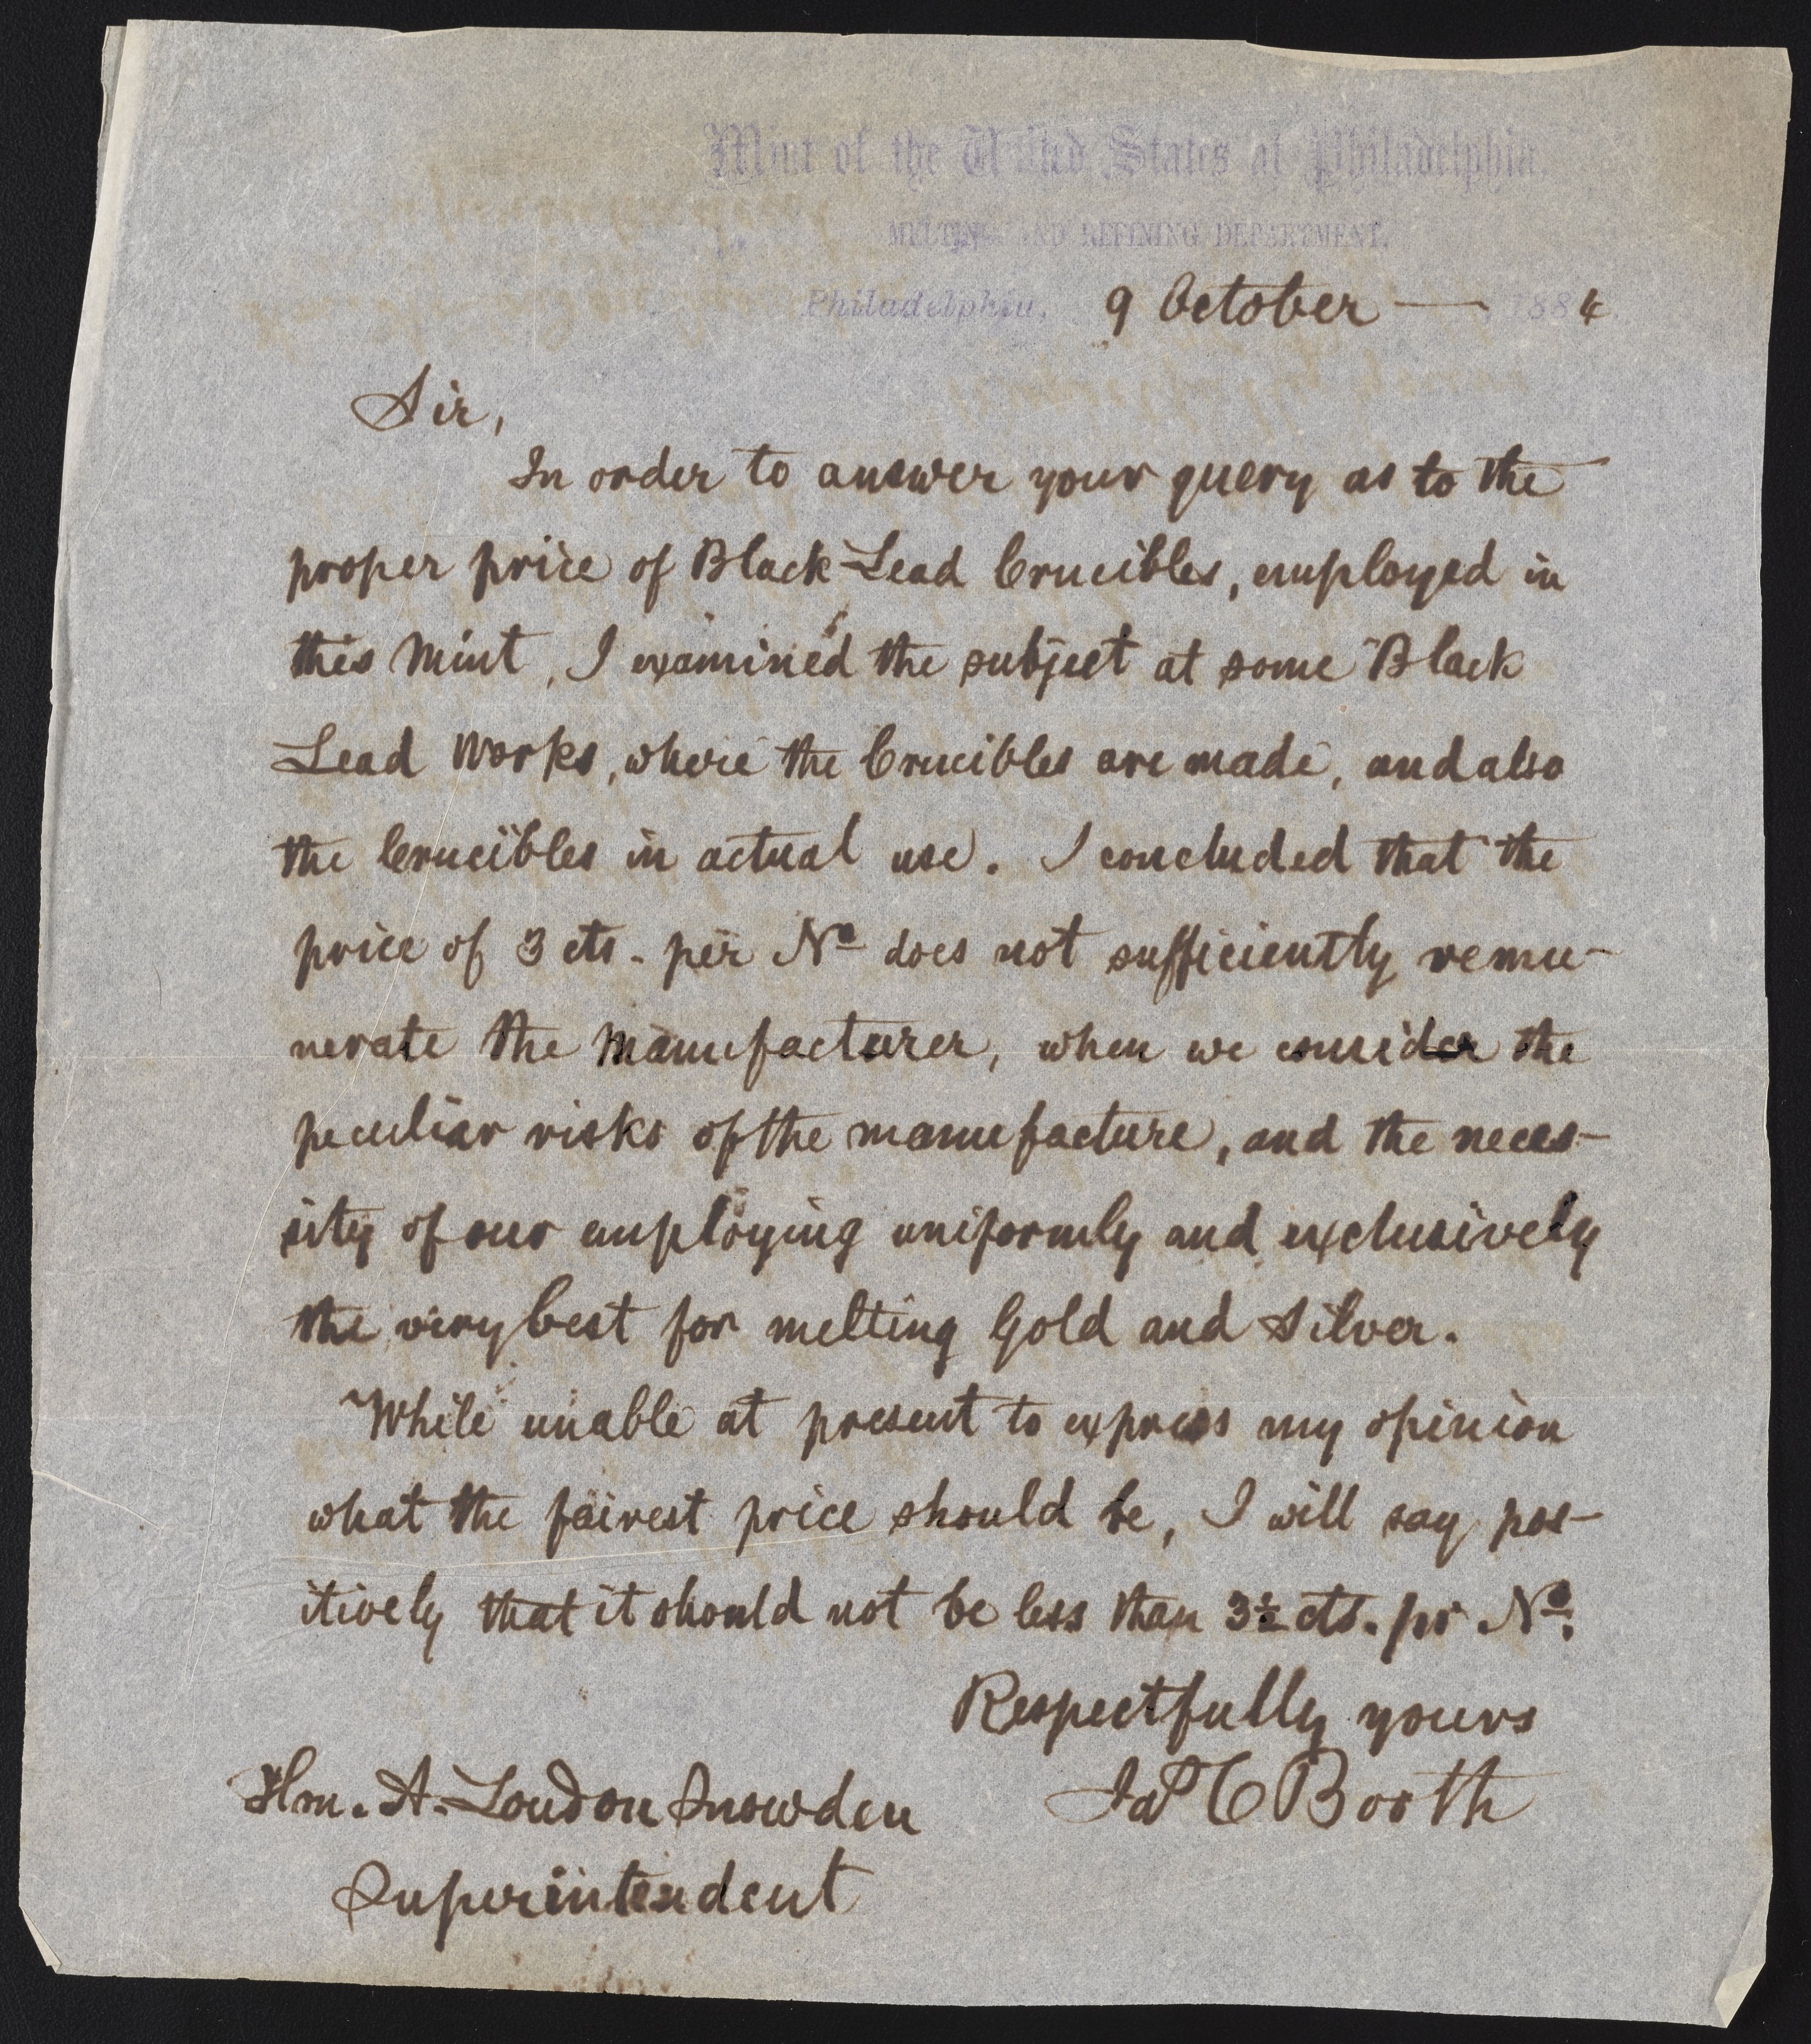 Mint of the United States at Philadelphia.
MELTING AND REFINING DEPARTMENT.
Philadelphia, 9 October — , 1884.
Sir,
In order to answer your query as to the
proper price of Black-Lead Crucibles, employed in
this Mint, I examined the subject at some Black
Lead Works, where the Crucibles are made, and also
the Crucibles in actual use. I concluded that the
price of 3 cts. per No does not sufficiently remu-
nerate the Manufacturer, when we consider the
peculiar risks of the manufacture, and the neces-
sity of our employing uniformly and exclusively
the very best for melting Gold and Silver.
While unable at present to express my opinion
what the fairest price should be, I will say pos-
itively that it should not be less than 3½ cts. pr No.
Respectfully yours
Hon. A. Loudon Snowden Jas C Booth
Superintendent